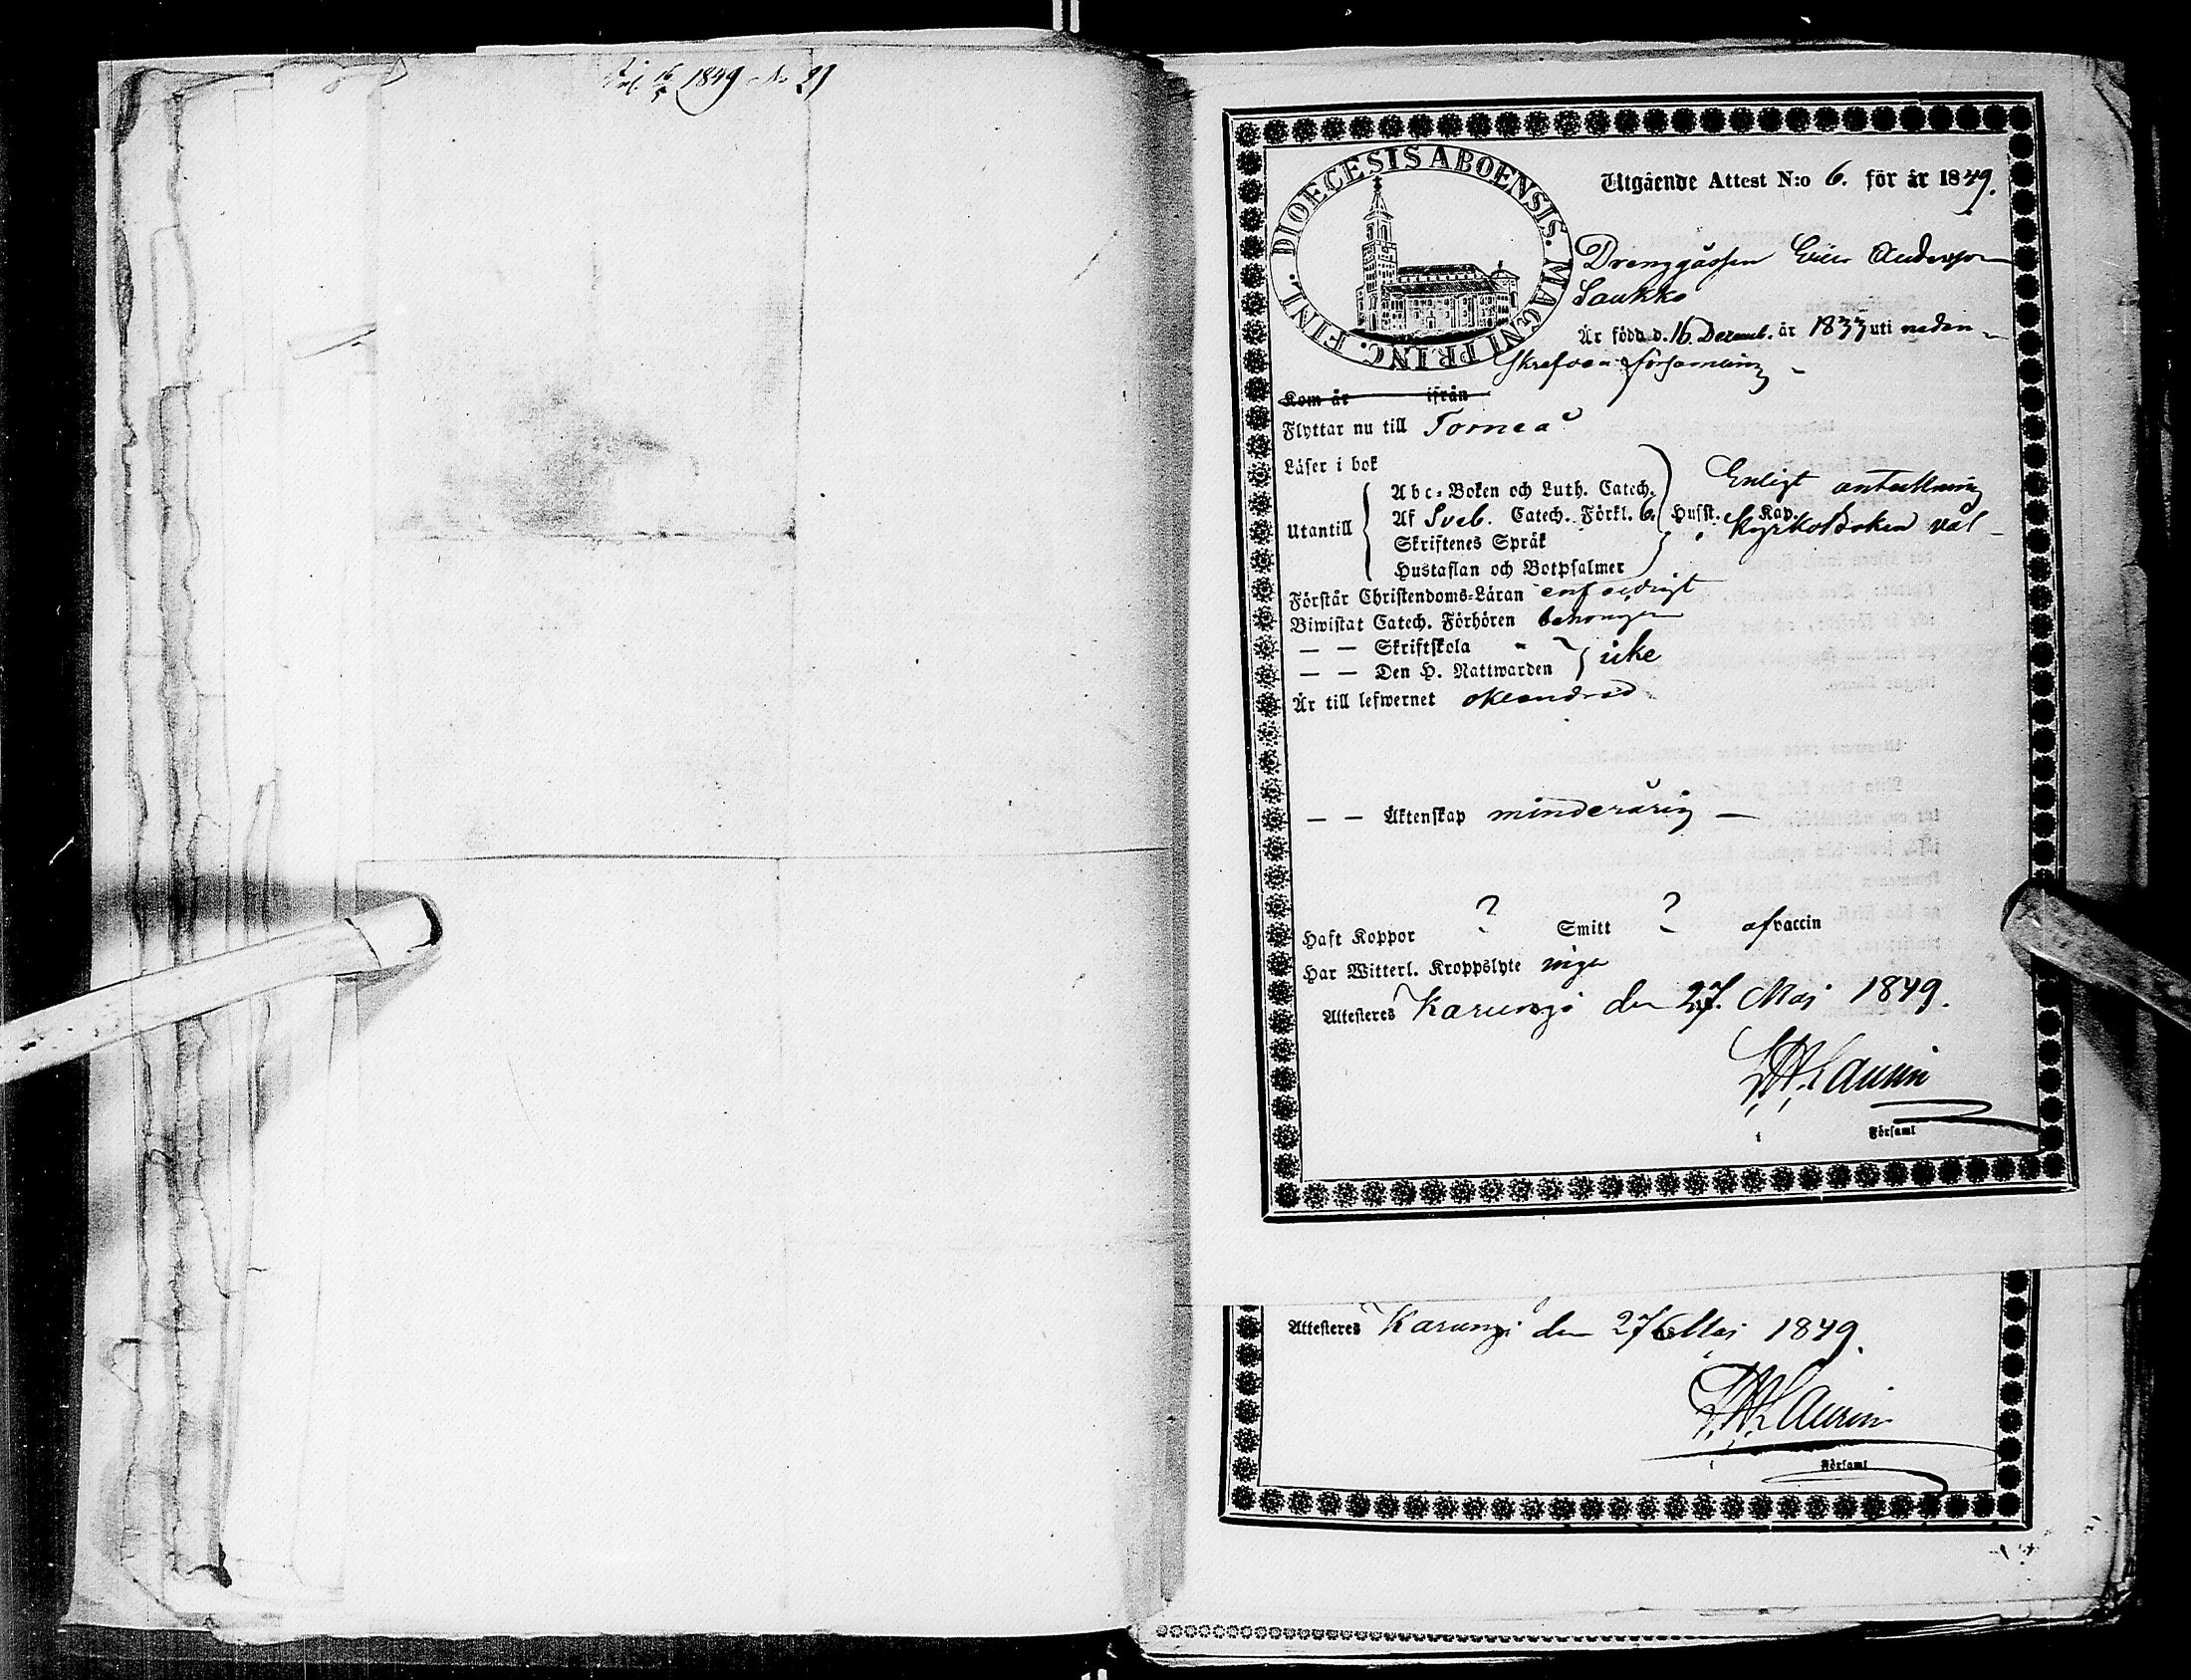 16/5 1849 No 29
DIOECESIS ABOENSIS. MAGNI PRINC. FINL.
Utgående Attest N:o 6. för år 1849.
Drenggåssen Eric Andersson
Saukko
Är född d. 16 Decemb. år 1833 uti nedan-
skrefven församling -
Kom år ifrån
Flyttar nu till Torneå
Läser i bok
Utantill
Abc-Boken och Luth. Catech.
Af Sveb. Catech. Förkl. 6. Husst. Kap.
Skriftenes Språk
Hustaflan och Botpsalmer
Enligt anteckning
i Kyrkoboken väl -
Förstår Christendoms-Läran enfaldigt
Biwistat Catech. Förhören behörigen
— — Skriftskola "
— — Den H. Nattwarden } icke
Är till lefwernet oklandrad
— — Äktenskap minderårig —
Haft Koppor ? Smitt ? af vaccin
Har Witterl. Kroppslyte inga
Attesteres Karungi den 27. Maj 1849.
Laurin
i Församl
Attesteres Karungi den 27 Maj 1849.
Laurin
i Församl